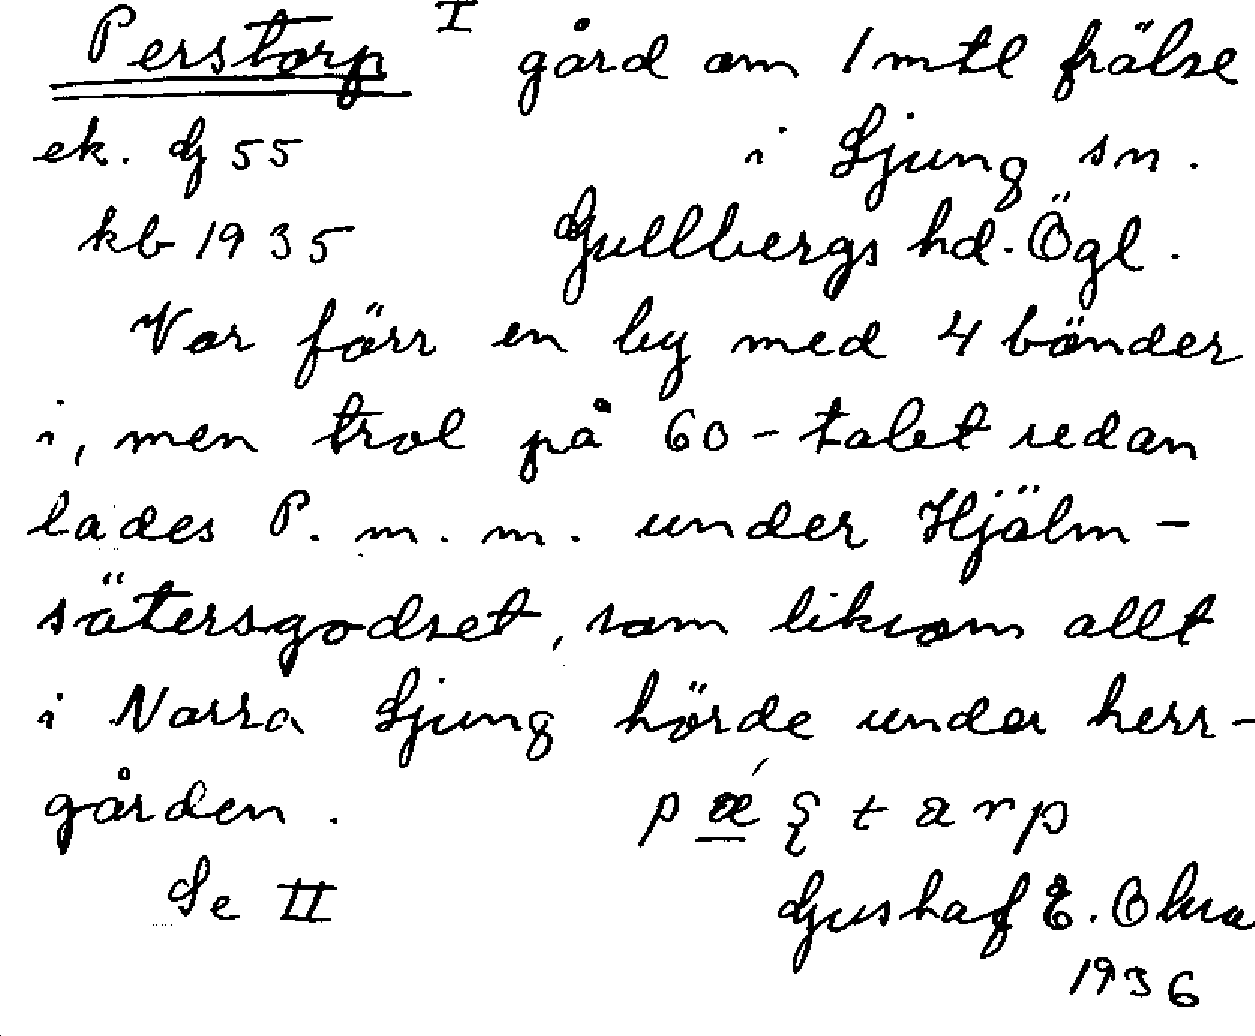 Perstorp I gård om 1 mtl frälse
ek. G 55 i Ljung sn.
kb 1935 Gullbergs hd. Ögl.
Var förr en by med 4 bönder
i, men trol på 60-talet redan
lades P. m. m. under Hjälm-
sätersgodset, som liksom allt
i Norra Ljung hörde under herr-
gården. 
Se II Gustaf E.
1936